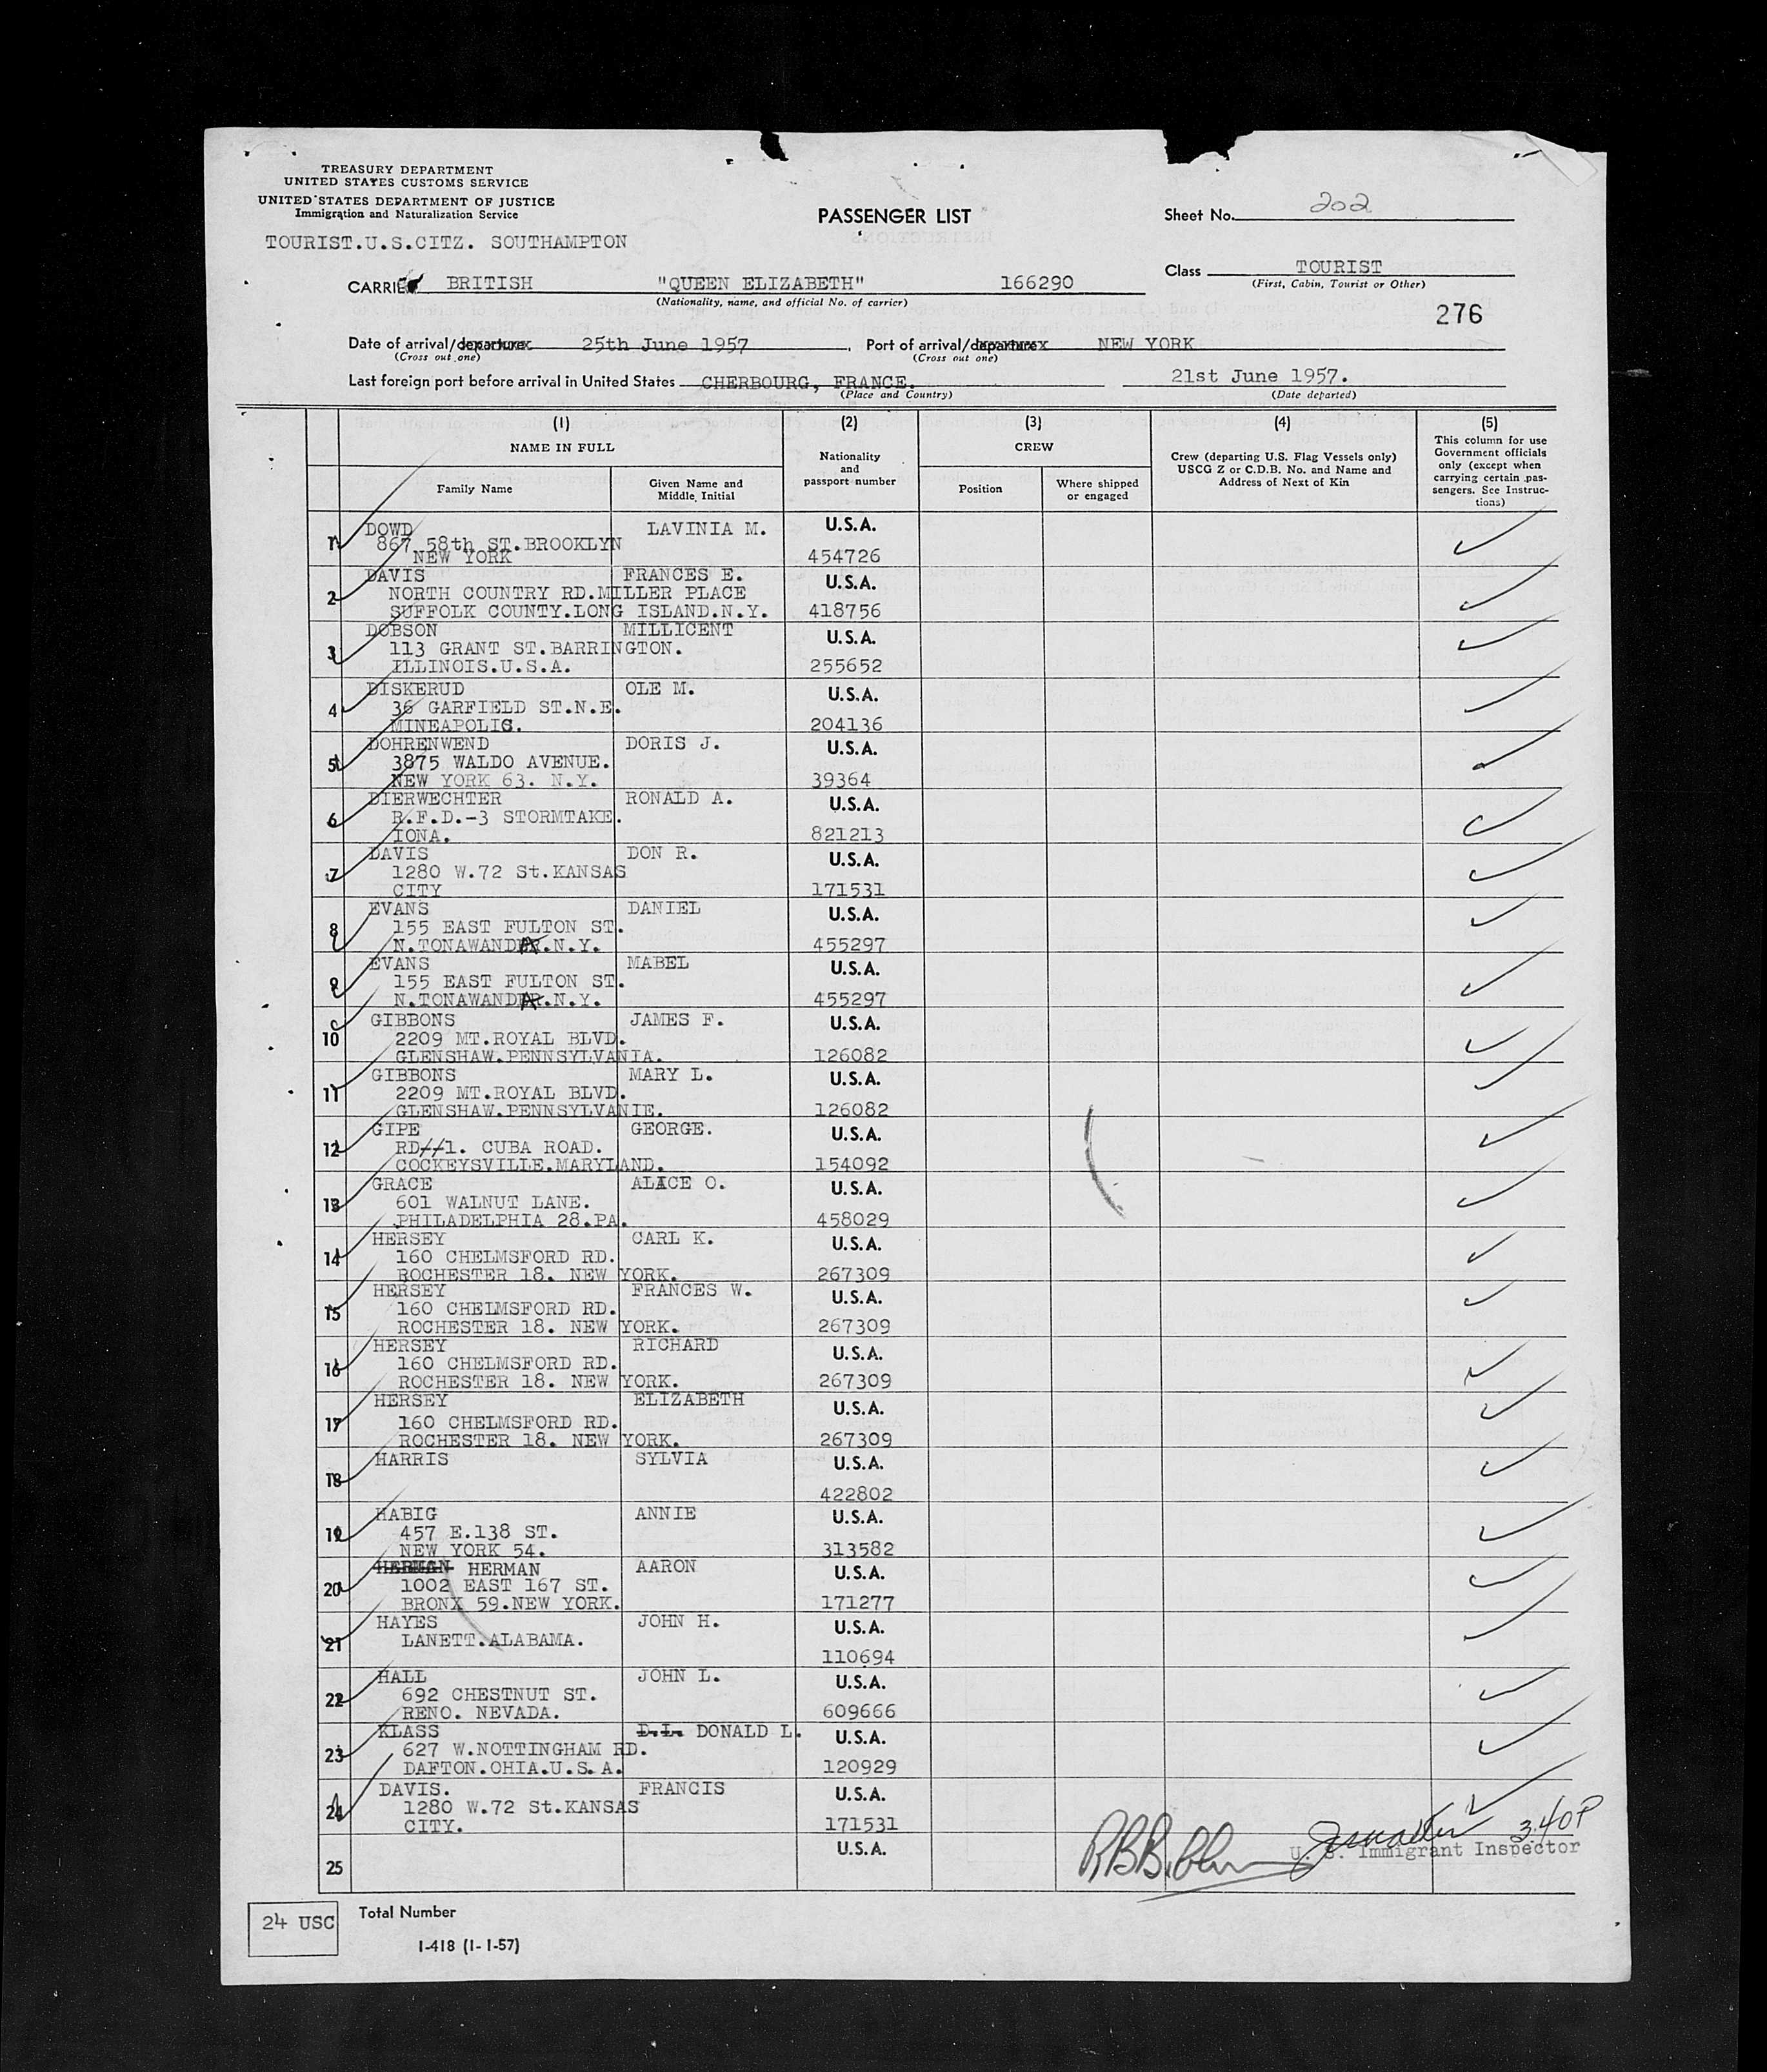 TREASURY DEPARTMENT
UNITED STATES CUSTOMS SERVICE
UNITED STATES DEPARTMENT OF JUSTICE
Immigration and Naturalization Service
TOURIST.U.S.CITZ. SOUTHAMPTON
PASSENGER LIST
Sheet No. 202
Class TOURIST
(First, Cabin, Tourist or Other)
CARRIE BRITISH "QUEEN ELIZABETH" 166290
(Nationality, name, and official No. of carrier)
276
Date of arrival/departure 25th June 1957. Port of arrival/departure NEW YORK
(Cross out one) (Cross out one)
Last foreign port before arrival in United States CHERBOURG, FRANCE. 21st June 1957.
(Place and Country) (Date departed)
(1) (2) (3) (4) (5)
NAME IN FULL
Family Name
Given Name and
Middle Initial
Nationality
and
passport number
CREW
Position
Where shipped
or engaged
Crew (departing U.S. Flag Vessels only)
USCG Z or C.D.B. No. and Name and
Address of Next of Kin
This column for use
Government officials
only (except when
carrying certain pas-
sengers. See Instruc-
tions)
1 DOWD LAVINIA M. U.S.A.
867 58th ST.BROOKLYN
NEW YORK 454726
2 DAVIS FRANCES E. U.S.A.
NORTH COUNTRY RD.MILLER PLACE
SUFFOLK COUNTY.LONG ISLAND.N.Y. 418756
3 DOBSON MILLICENT U.S.A.
113 GRANT ST.BARRINGTON.
ILLINOIS.U.S.A. 255652
4 DISKERUD OLE M. U.S.A.
36 GARFIELD ST.N.E.
MINEAPOLIS. 204136
5 DOHRENWEND DORIS J. U.S.A.
3875 WALDO AVENUE.
NEW YORK 63. N.Y. 39364
6 DIERWECHTER RONALD A. U.S.A.
R.F.D.-3 STORMTAKE.
IONA. 821213
7 DAVIS DON R. U.S.A.
1280 W.72 St.KANSAS
CITY 171531
8 EVANS DANIEL U.S.A.
155 EAST FULTON ST.
N.TONAWANDA.N.Y. 455297
9 EVANS MABEL U.S.A.
155 EAST FULTON ST.
N.TONAWANDA.N.Y. 455297
10 GIBBONS JAMES F. U.S.A.
2209 MT.ROYAL BLVD.
GLENSHAW.PENNSYLVANIA. 126082
11 GIBBONS MARY L. U.S.A.
2209 MT.ROYAL BLVD.
GLENSHAW.PENNSYLVANIE. 126082
12 GIPE GEORGE. U.S.A.
RD//1. CUBA ROAD.
COCKEYSVILLE.MARYLAND. 154092
13 GRACE ALICE O. U.S.A.
601 WALNUT LANE.
PHILADELPHIA 28.PA. 458029
14 HERSEY CARL K. U.S.A.
160 CHELMSFORD RD.
ROCHESTER 18. NEW YORK. 267309
15 HERSEY FRANCES W. U.S.A.
160 CHELMSFORD RD.
ROCHESTER 18. NEW YORK. 267309
16 HERSEY RICHARD U.S.A.
160 CHELMSFORD RD.
ROCHESTER 18. NEW YORK. 267309
17 HERSEY ELIZABETH U.S.A.
160 CHELMSFORD RD.
ROCHESTER 18. NEW YORK. 267309
18 HARRIS SYLVIA U.S.A.
422802
19 HABIG ANNIE U.S.A.
457 E.138 ST.
NEW YORK 54. 313582
20 HERMAN AARON U.S.A.
1002 EAST 167 ST.
BRONX 59.NEW YORK. 171277
21 HAYES JOHN H. U.S.A.
LANETT.ALABAMA.
110694
22 HALL JOHN L. U.S.A.
692 CHESTNUT ST.
RENO. NEVADA. 609666
23 KLASS D.L. DONALD L. U.S.A.
627 W.NOTTINGHAM RD.
DAFTON.OHIA.U.S.A. 120929
24 DAVIS. FRANCIS U.S.A.
1280 W.72 St.KANSAS
CITY. 171531
25 U.S.A.
3.40P
U. S. Immigrant Inspector
24 USC Total Number
I-418 (1-1-57)